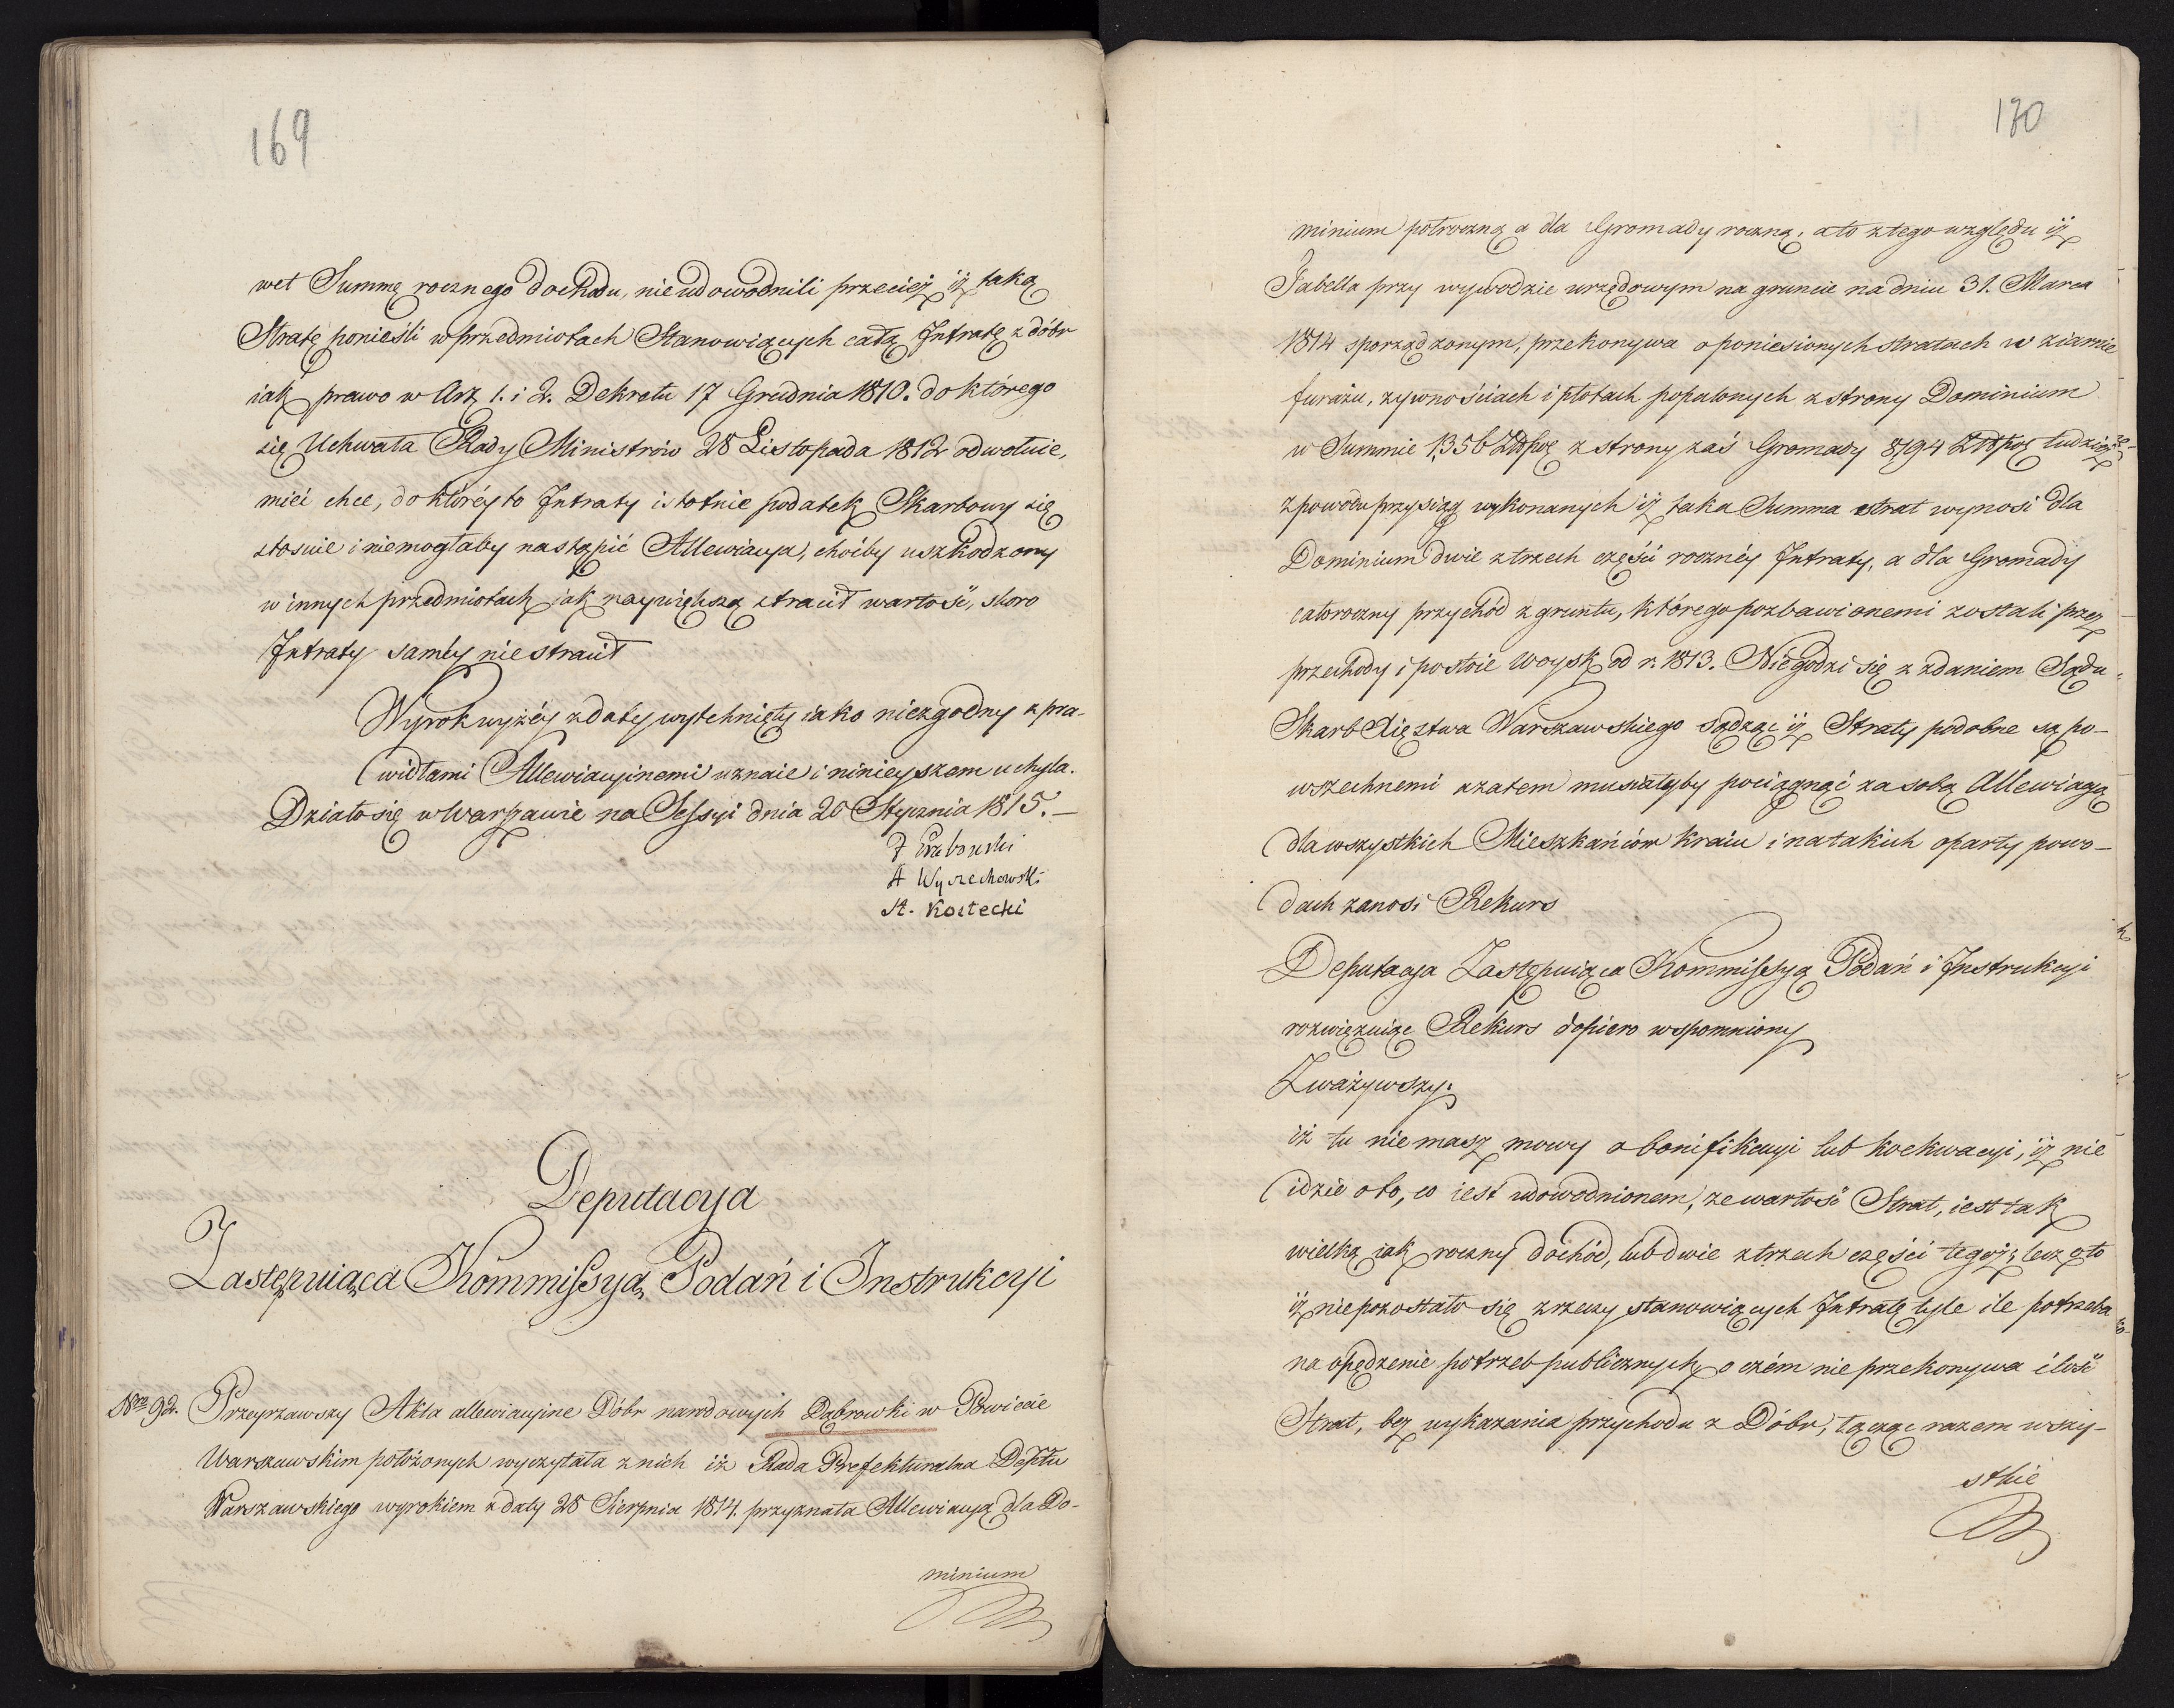 169
wet Summę rocznego dochodu, nie udowodnili przecież iż taką
Stratę ponieśli w przedmiotach Stanowiących całą Intratę z dóbr
iak prawo w Art. 1. i 2. Dekretu 17 Grudnia 1810. do którego
się Uchwała Rady Ministrów 28 Listopada 1812 odwołuie,
mieć chce, do któréy to Intraty istotnie podatek Skarbowy się
stosuie i niemogłaby nastąpić Allewiacya, choćby uszkodzony
w innych przedmiotach jak naywiększą stracił wartość, skoro
Intraty saméy nie stracił
Wyrok wyżéy z daty wytchnięty iako niezgodny z pra-
widłami Allewiacyinemi uznaie i ninieyszem uchyla.
Działo się w Warszawie na Sessyi dnia 20 Stycznia 1815. —
F Grabowski
A Wyczechowski
St. Kostecki
Deputacya
Zastępuiąca Kommissyą Podań i Instrukcyi
Nro 92. Przeyrzawszy Akta allewiacyine Dóbr narodowych Dąbrowki w Powiecie
Warszawskim położonych wyczytała z nich iż Rada Prefekturalna Deptu
Warszawskiego wyrokiem z daty 28 Sierpnia 1814. przyznała Allewiacyą dla Do-
minium
170
minium półroczną a dla Gromady roczną, a to z tego względu iż
Tabella przy wywodzie urzędowym na gruncie na dniu 31. Marca
1814 sporządzonym, przekonywa o poniesionych stratach w ziarnie
furażu, żywnościach i płotach popalonych z strony Dominium
w Summie 1,356 Złpol z strony zaś Gromady 8194 Złpol tudzież
z powodu przysiąg wykonanych iż taka Summa strat wynosi dla
Dominium dwie z trzech części rocznéy Intraty, a dla Gromady
całoroczny przychód z gruntu, którego pozbawionemi zostali przez
przechody i postoie Woysk od r. 1813. Niegodzi się z zdaniem Sądu
Skarb Xięztwa Warszawskiego sądząc iż Straty podobne są po-
wszechnemi a zatem musiałyby pociągnąć za sobą Allewiacyą
dla wszystkich Mieszkańców kraiu i na takich oparty powo-
dach zanosi Rekurs
Deputacya Zastępuiąca Kommissyą Podań i Instrukcyi
rozwięzuiąc Rekurs dopiero wspomniony
Zważywszy.
iż tu nie masz mowy o bonifikacyi lub koekwacyi, iż nie
idzie o to, co iest udowodnionem, że wartość Strat, iest tak
wielką iak roczny dochód, lub dwie z trzech części tegoż; lecz o to
iż nie pozostało się z rzeczy stanowiących Intratę tyle ile potrzeba
na opędzenie potrzeb publicznych, o czém nie przekonywa ilość
Strat, bez wykazania przychodu z Dóbr, łącząc razem wszy-
stkie